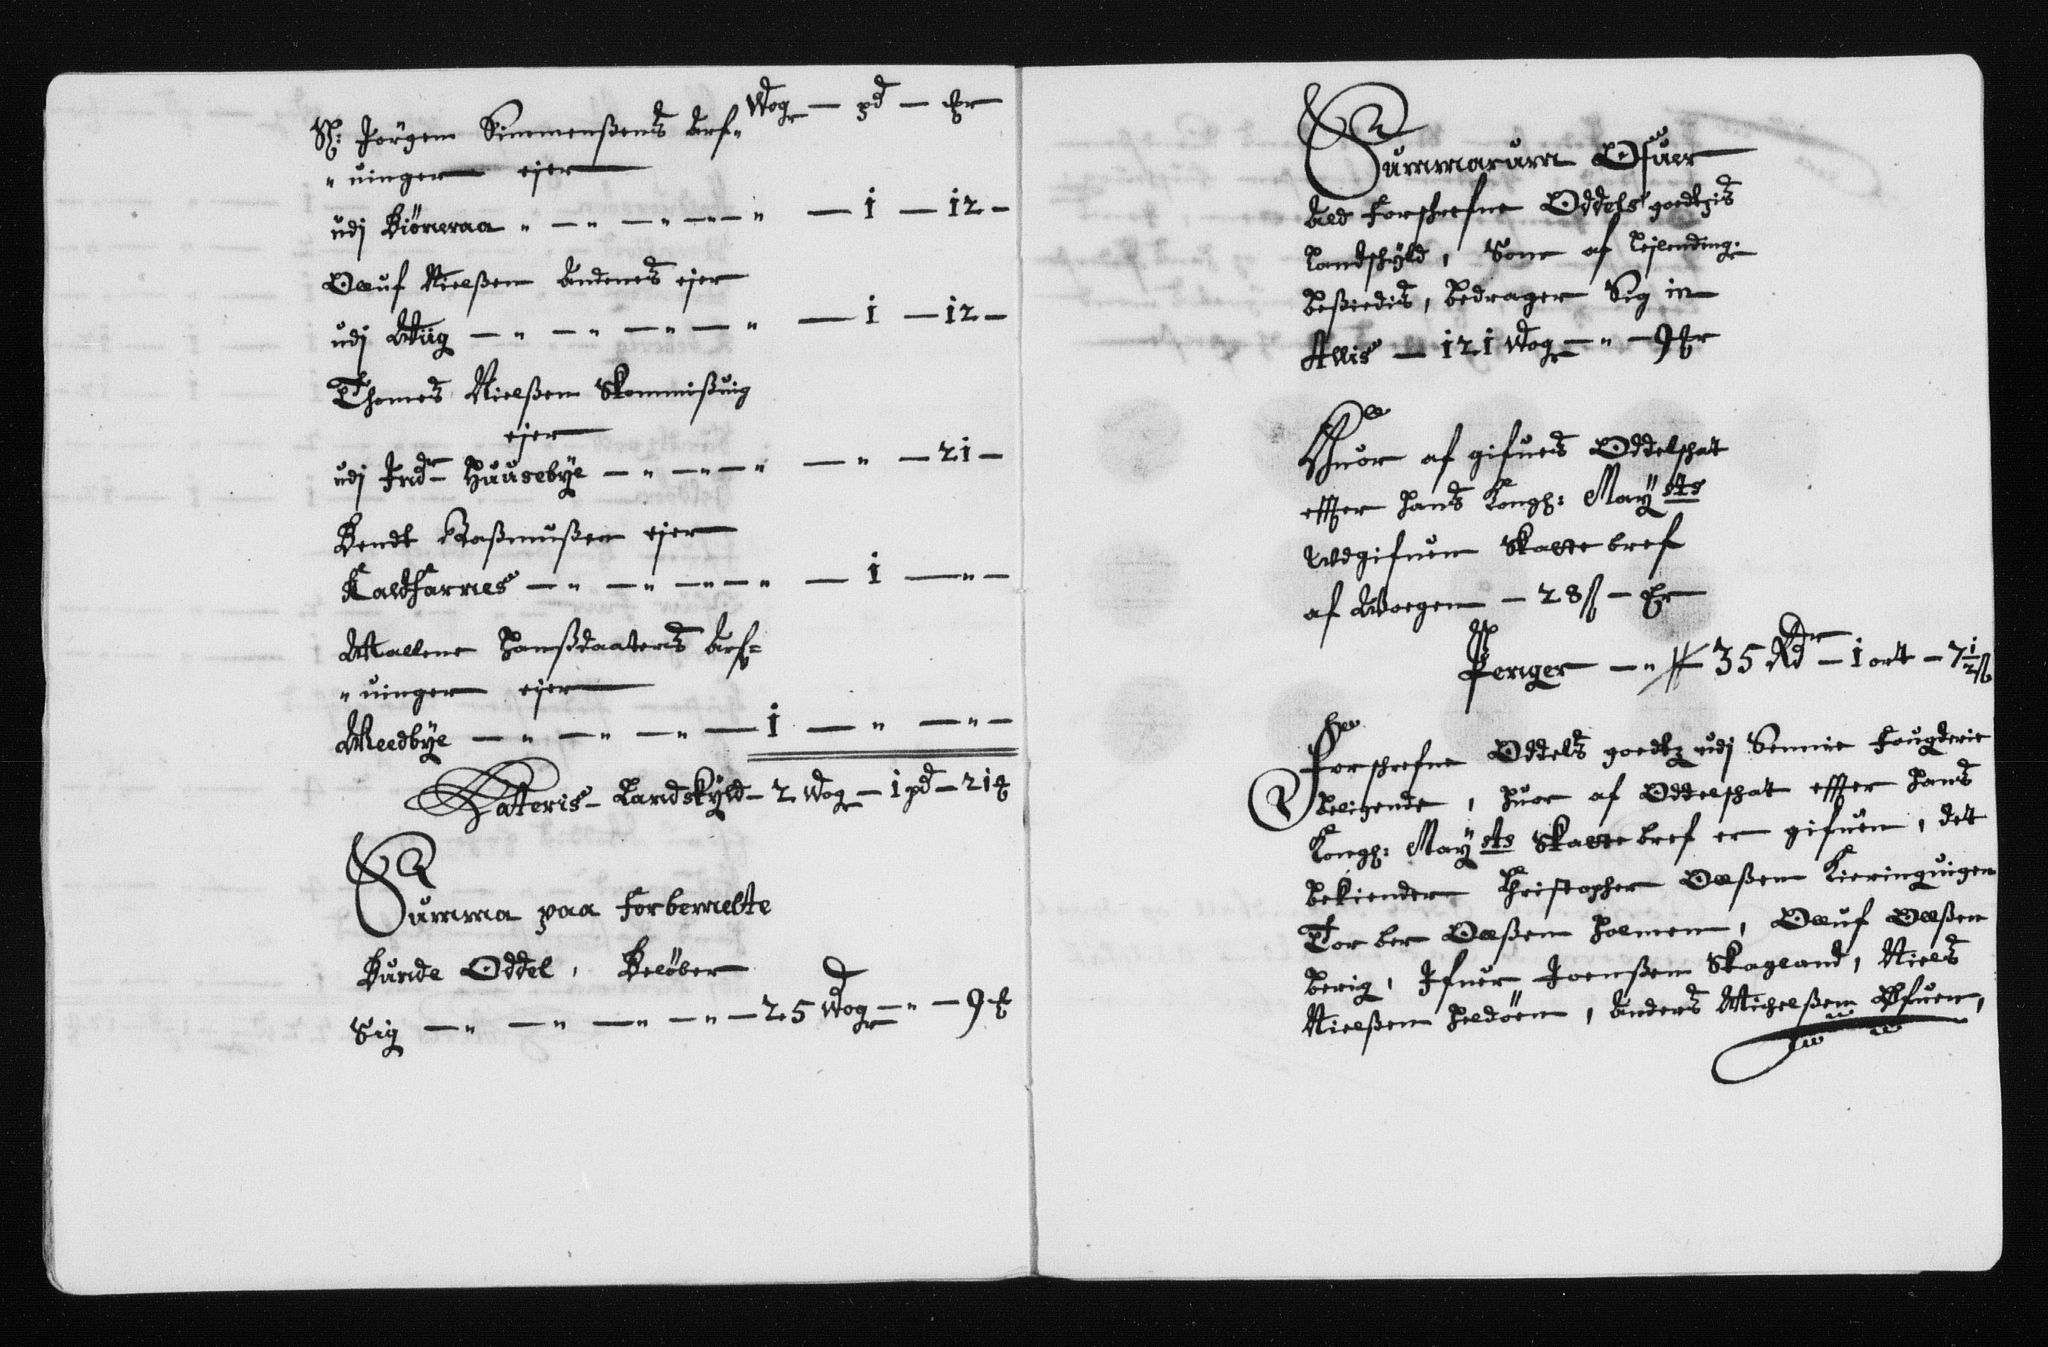 Wog — pd — ℔r
Sl: Jörgen Simmenßens Arf-
"uinger ejer
udj Biörneraa " — " — " — " — 1 — 12 —
Oluf Nielßen Andenes ejer
udj Wiig — " — " — " — " — 1 — 12 —
Thomes Nielßen Skommißuig
ejer
udj Indr Huusebÿe — " — " — " — " — 21 —
Bendt Raßmußen ejer
Kaldfarnes — " — " — " — " — 1 — " —
Mallene Hanßdaaters Arf=
"uinger ejer
Meedbÿe — " — " — " — 1 — " — " —
Latteris Landskÿld — 2 Wog — 1 pd — 21 ℔
Summa paa forbemelte
Bunde Oddel, Belöber
Sig — " — " — " — " — 25 Wog — " — 9 ℔
Summarum Ofuer
Ald forschrefne Oddels goedtzis
Landschÿld, Som af Leylending:
Beßiedis, Bedrager Sig in
Allis — 121 Wog — " — 9 ℔r
Huor af gifues Oddelschat
effter Hans Kongh: Maÿsts
Udgifuen Skatte bref
af Woegen — 28 ß — Er
Penger — " — 35 Rdr — 1 ort — 7 1/2 ß
Forschrefne Oddels goedtz udj Sennie Fougderie
Beligende, Huor af Oddelschat effter Hans
Kongh: Maÿsts Skatte bref er gifuen, det
Bekiender Christopher Olßen Kieringuigen
Torber Olßen Holmen, Oluf Olßen
Berig, Ifuer Joenßen Skagland, Niels
Nielßen Heldöen, Anders Michelßen Öfuen,